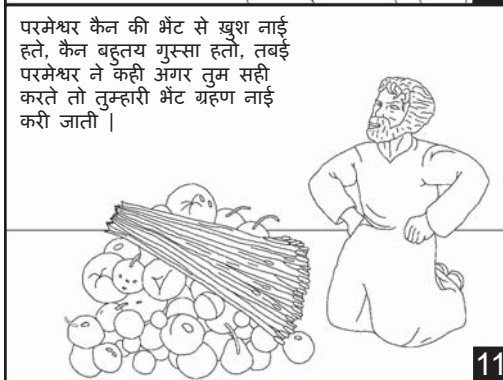 परमेश्वर कैन की भेंट से ख़ुश नाई
हते, कैन बहुतय गुस्सा हतो, तबई
परमेश्वर ने कही अगर तुम सही
करते तो तुम्हारी भेंट ग्रहण नाई
करी जाती |
11